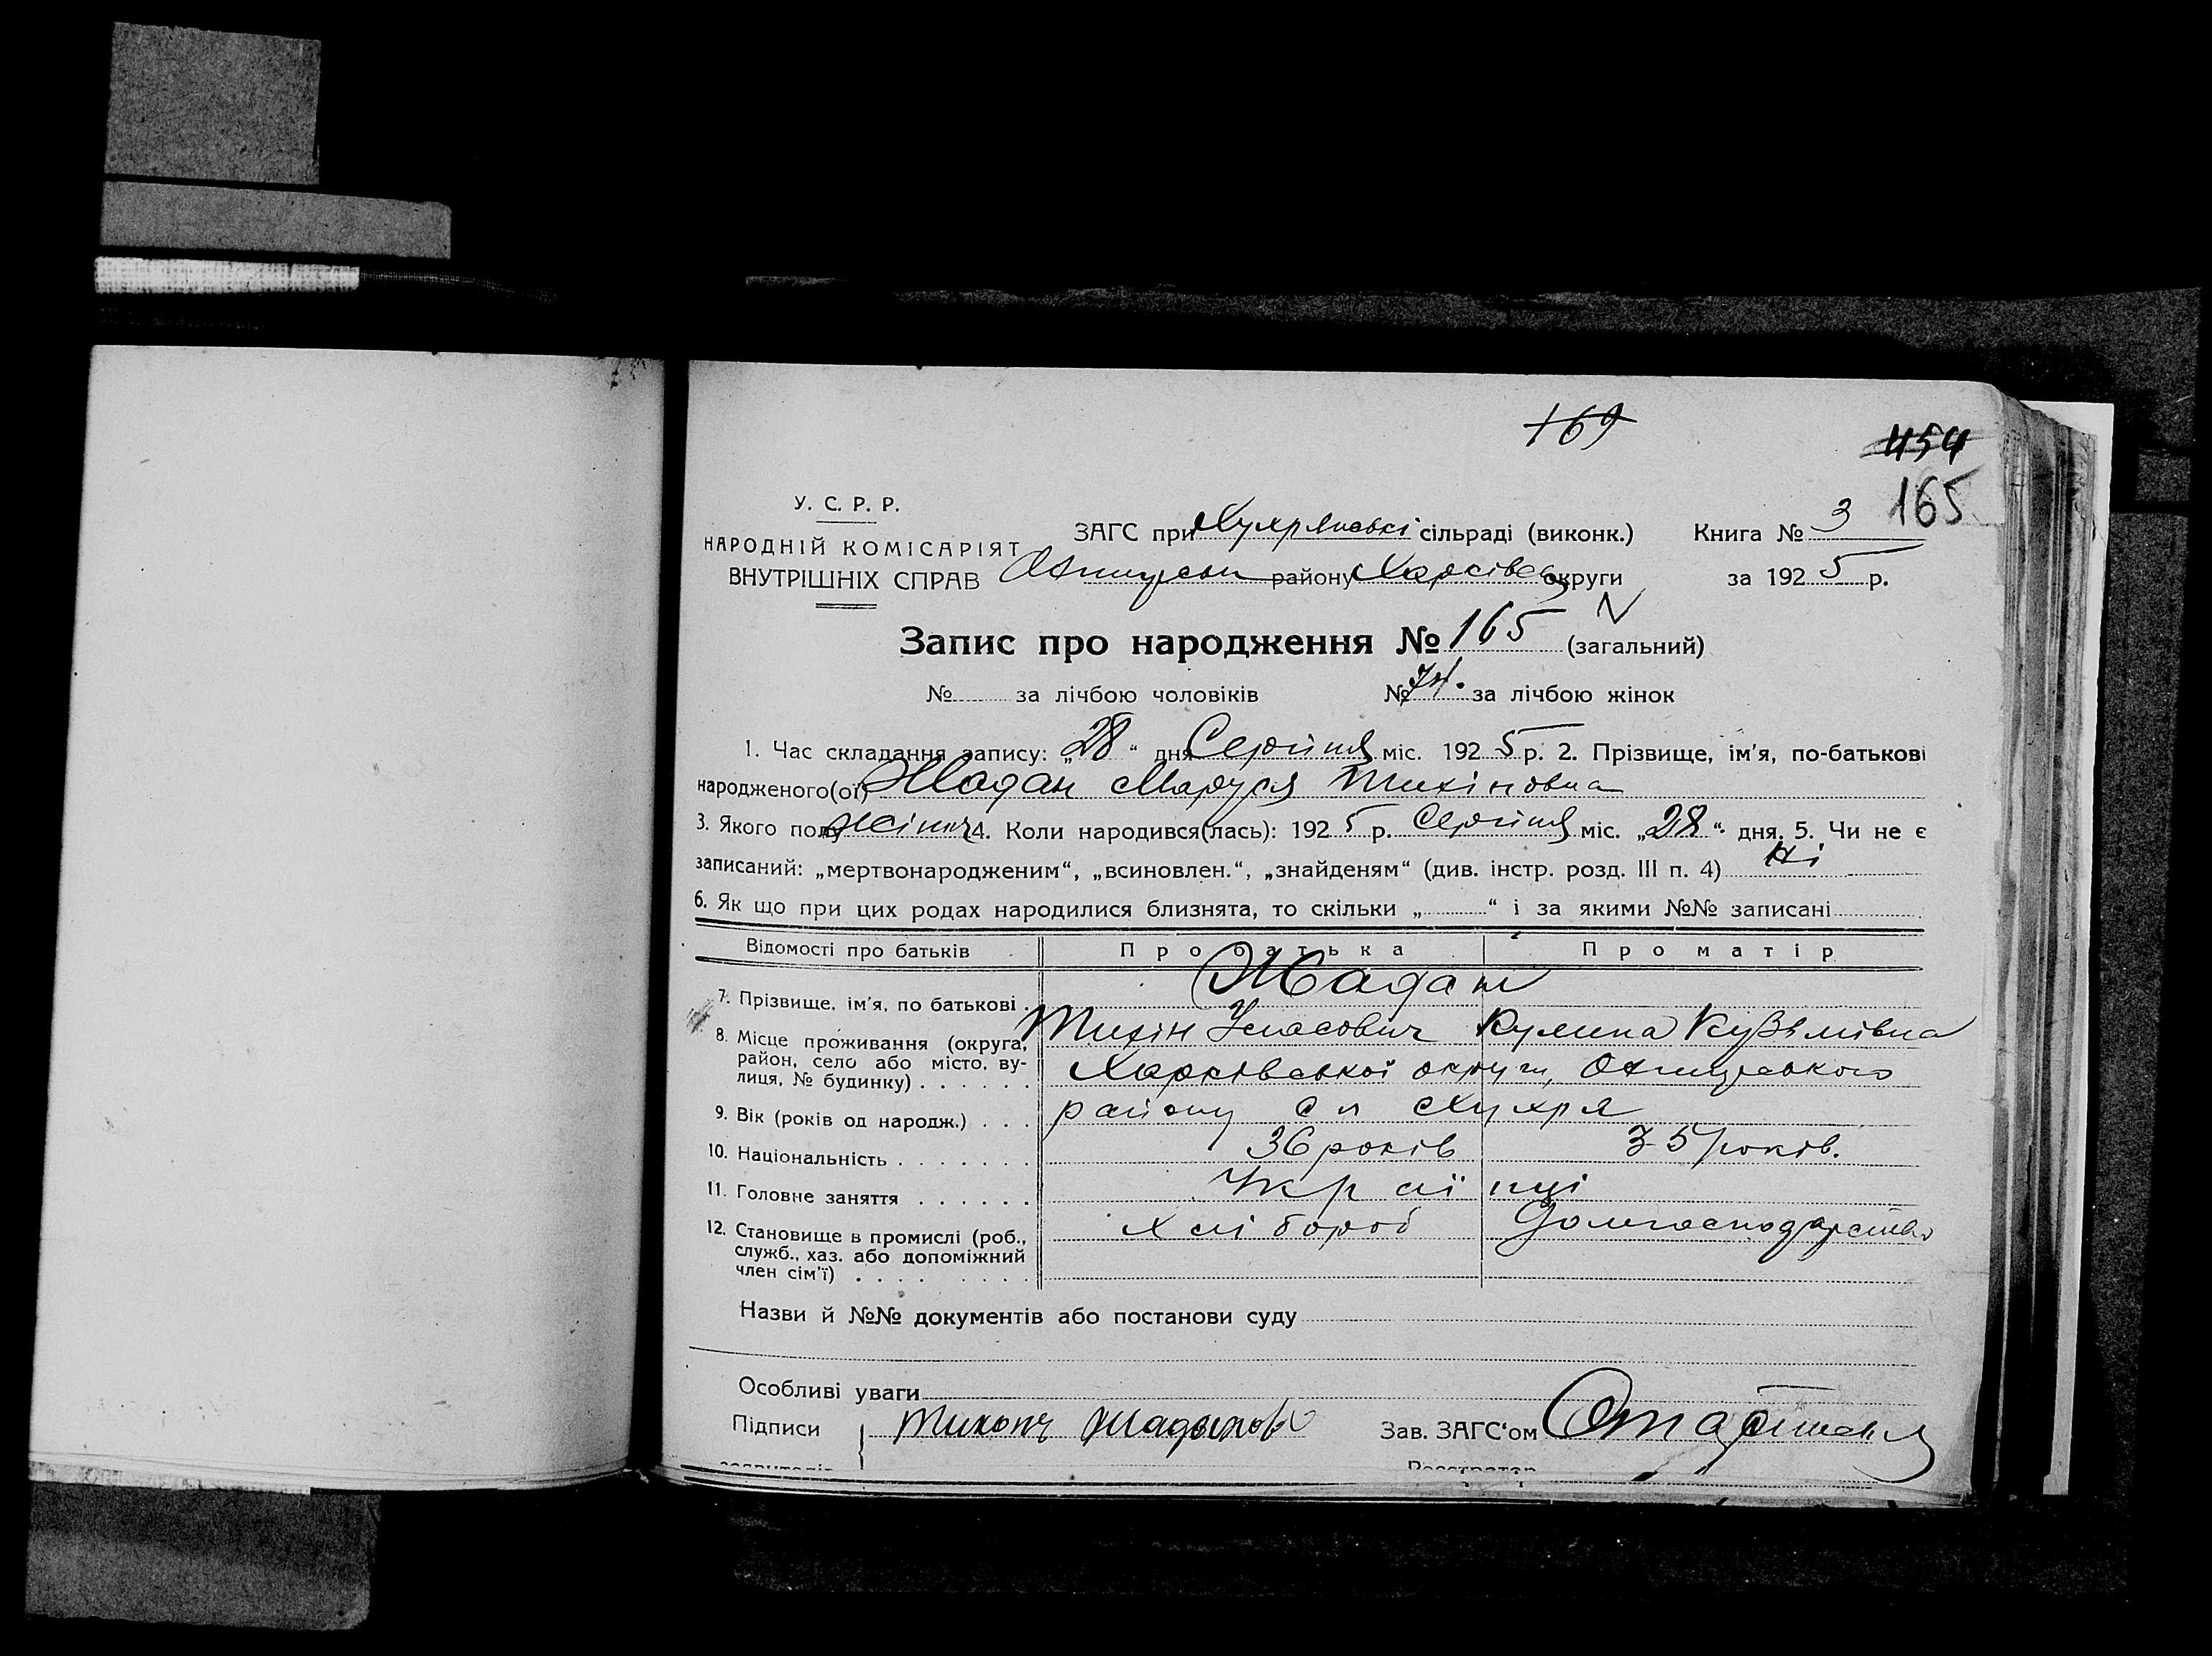 169
454
165
У. С. Р. Р.
НАРОДНІЙ КОМІСАРІЯТ
ВНУТРІШНІХ СПРАВ
ЗАГС при Хухрянські сільраді (виконк.)
Книга № 3
району Харківськ округи
за 1925 р.
Запис про народження № 165 (загальний)
№ за лічбою чоловіків № 74. за лічбою жінок
1. Час складання запису: „28“ дня Серпня міс. 1925 р. 2. Прізвище, ім'я, по-батькові
народженого(ої) Жадан Маруся Тихіновна
3. Якого полу жіноч 4. Коли народився(лась): 1925 р. Серпня міс. „28“ дня. 5. Чи не є
записаний: „мертвонародженим“, „всиновлен.“, „знайденям“ (див. інстр. розд. III п. 4) Ні
6. Як що при цих родах народилися близнята, то скільки „ “ і за якими №№ записані
Відомості про батьків Про батька Про матір
Жадан
7. Прізвище, ім'я, по батькові
Тихін Уласович Кулина Кузьмівна
8. Місце проживання (округа,
район, село або місто, ву-
лиця, № будинку)
Харківської округи, Охтирського
району с Хухря
9. Вік (років од народж.)
36 років 35 років.
10. Національність
Українці
11. Головне заняття
хлібороб Домгосподарство
12. Становище в промислі (роб.,
служб., хаз. або допоміжний
член сім'ї)
Назви й №№ документів або постанови суду
Особливі уваги
Підписи Тихонъ Жадановъ Зав. ЗАГС'ом
Реєстратор